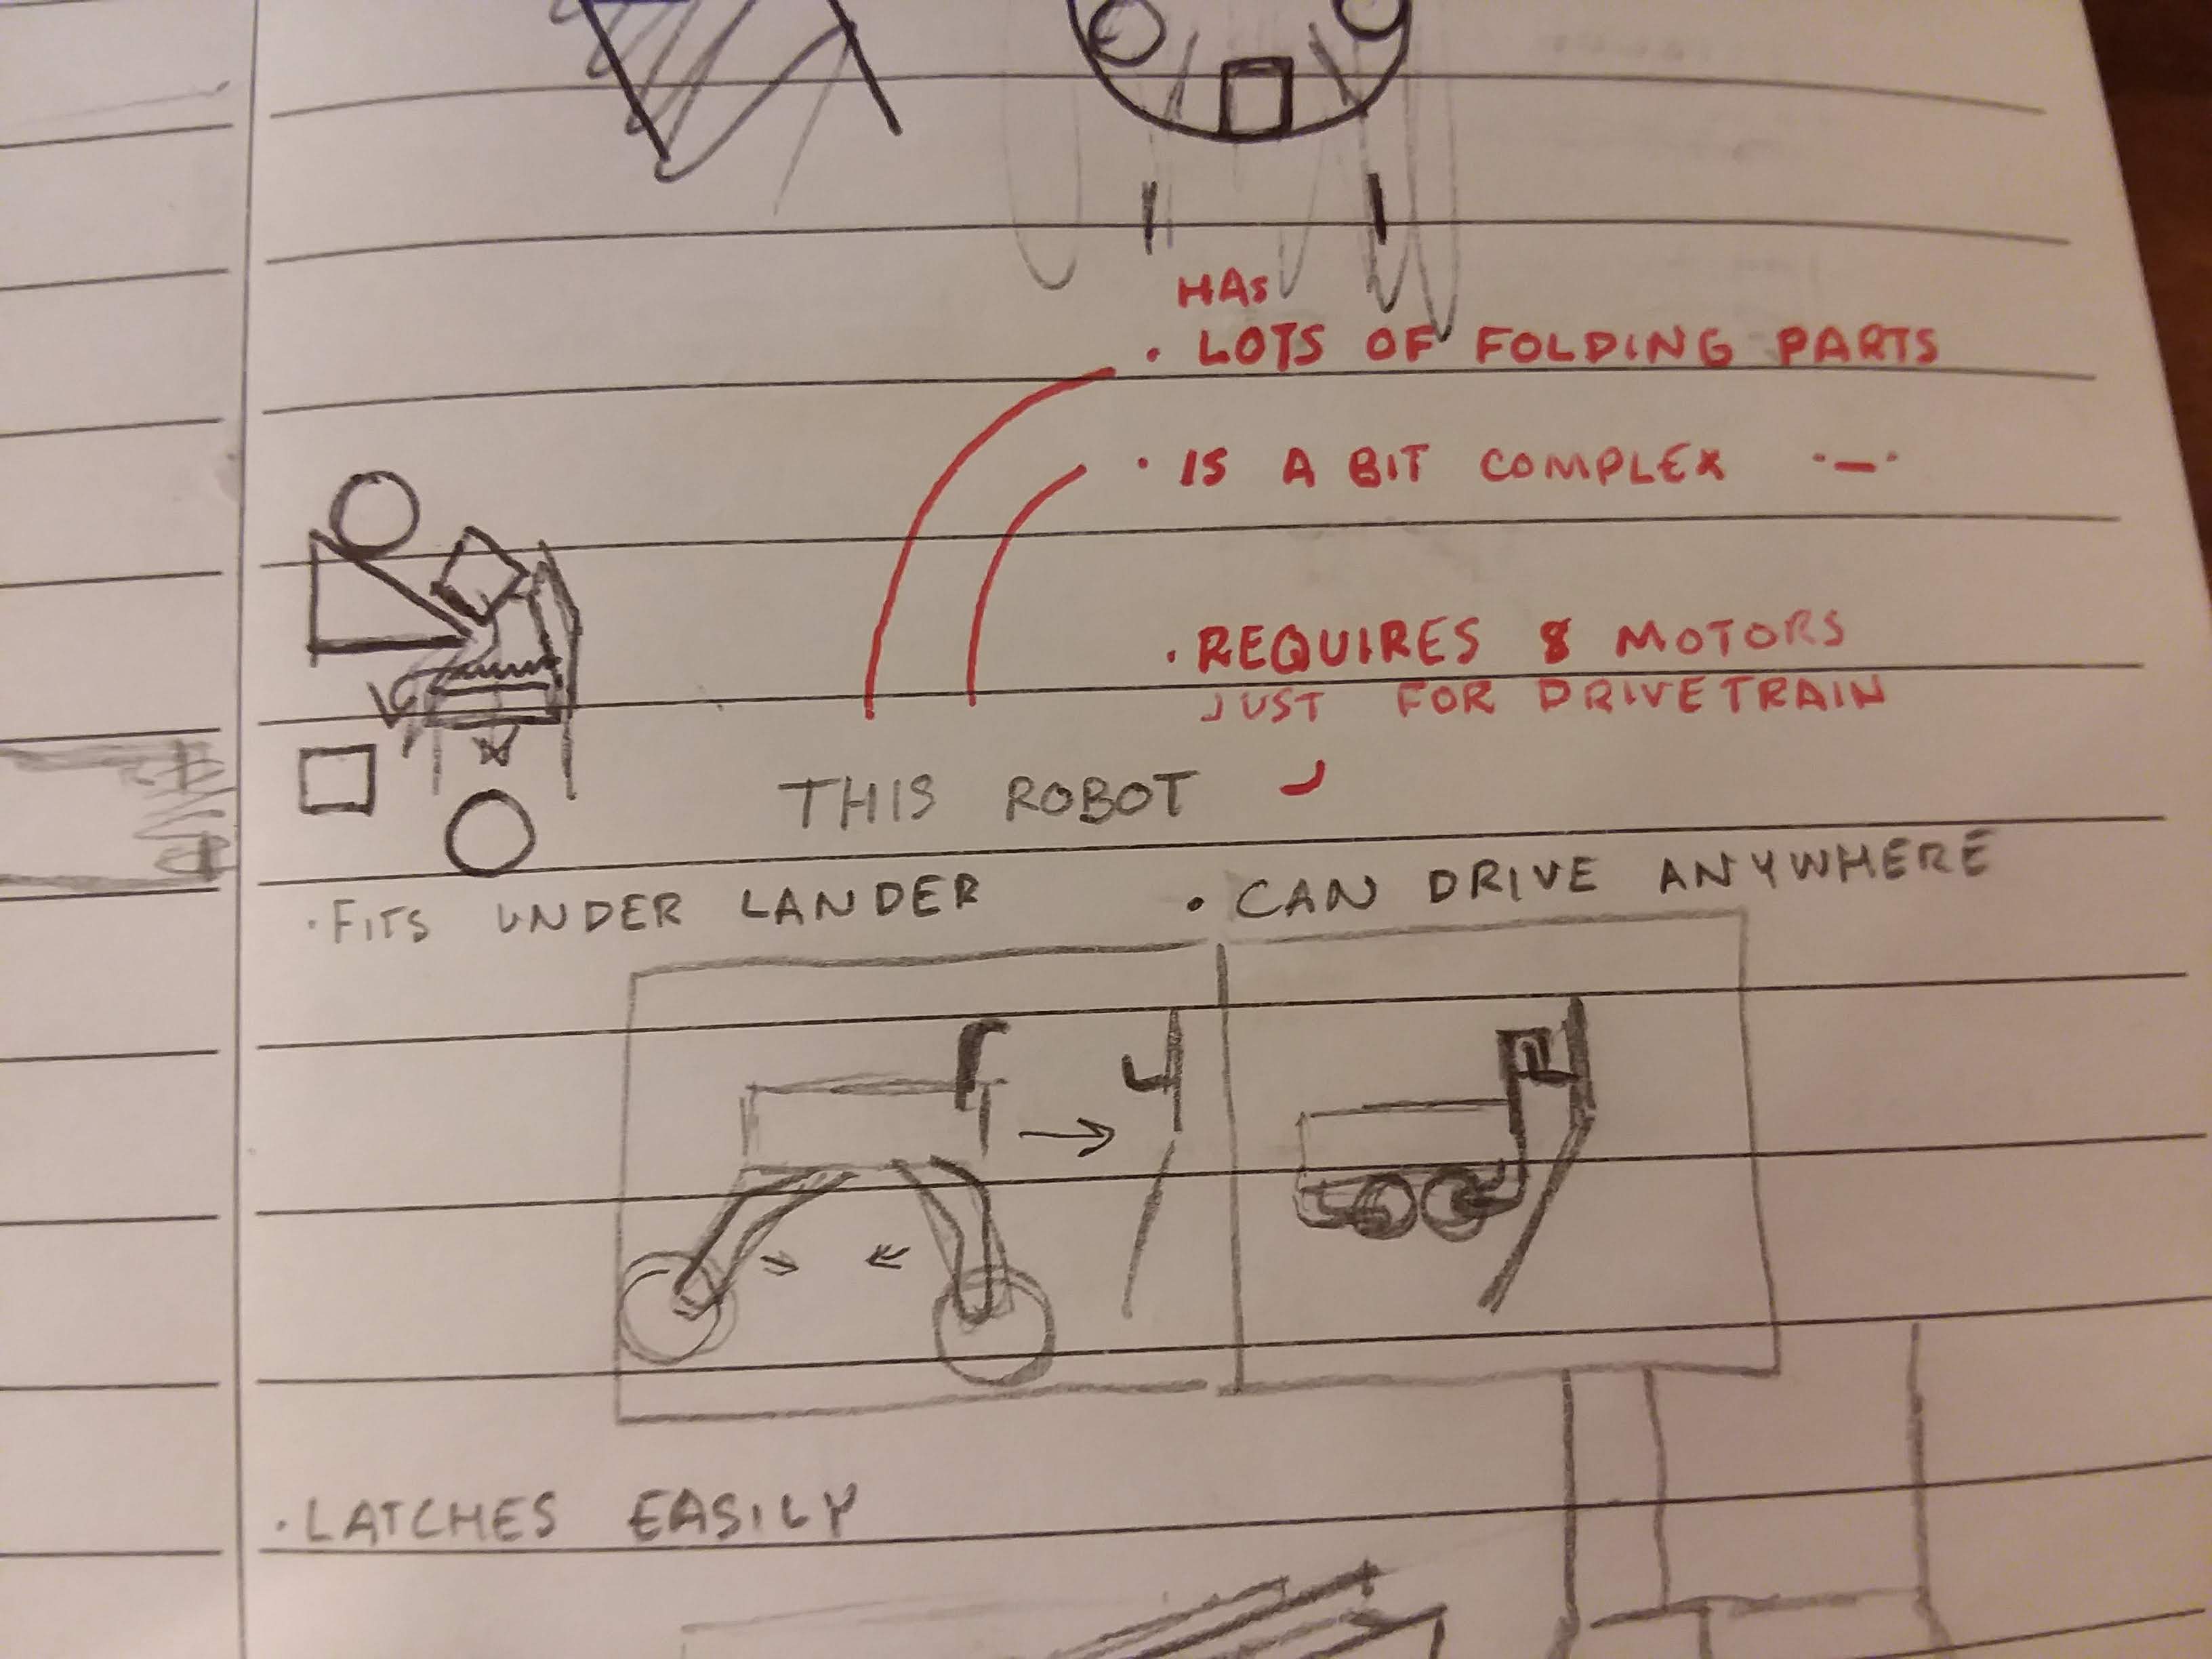 HAS
• LOTS OF FOLDING PARTS
• IS A BIT COMPLEX •—•
• REQUIRES 8 MOTORS
JUST FOR DRIVETRAIN
THIS ROBOT
• FITS UNDER LANDER • CAN DRIVE ANYWHERE
• LATCHES EASILY